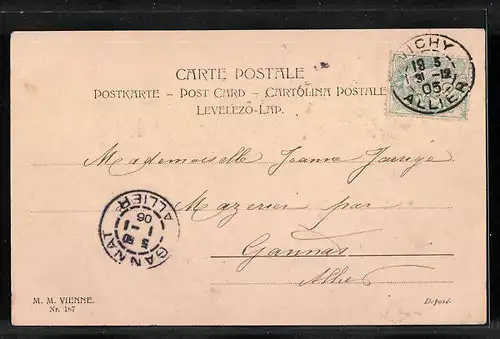 VICHY
19 5
31 -12
05
ALLIER
CARTE POSTALE
POSTKARTE – POST CARD – CARTOLINA POSTALE
LEVELEZŐ-LAP.
Mademoiselle Jeanne
Mazerier par
Gannat
Allier
GANNAT
1 -1
06
ALLIER
M. M. VIENNE.
Nr. 187
Déposé.